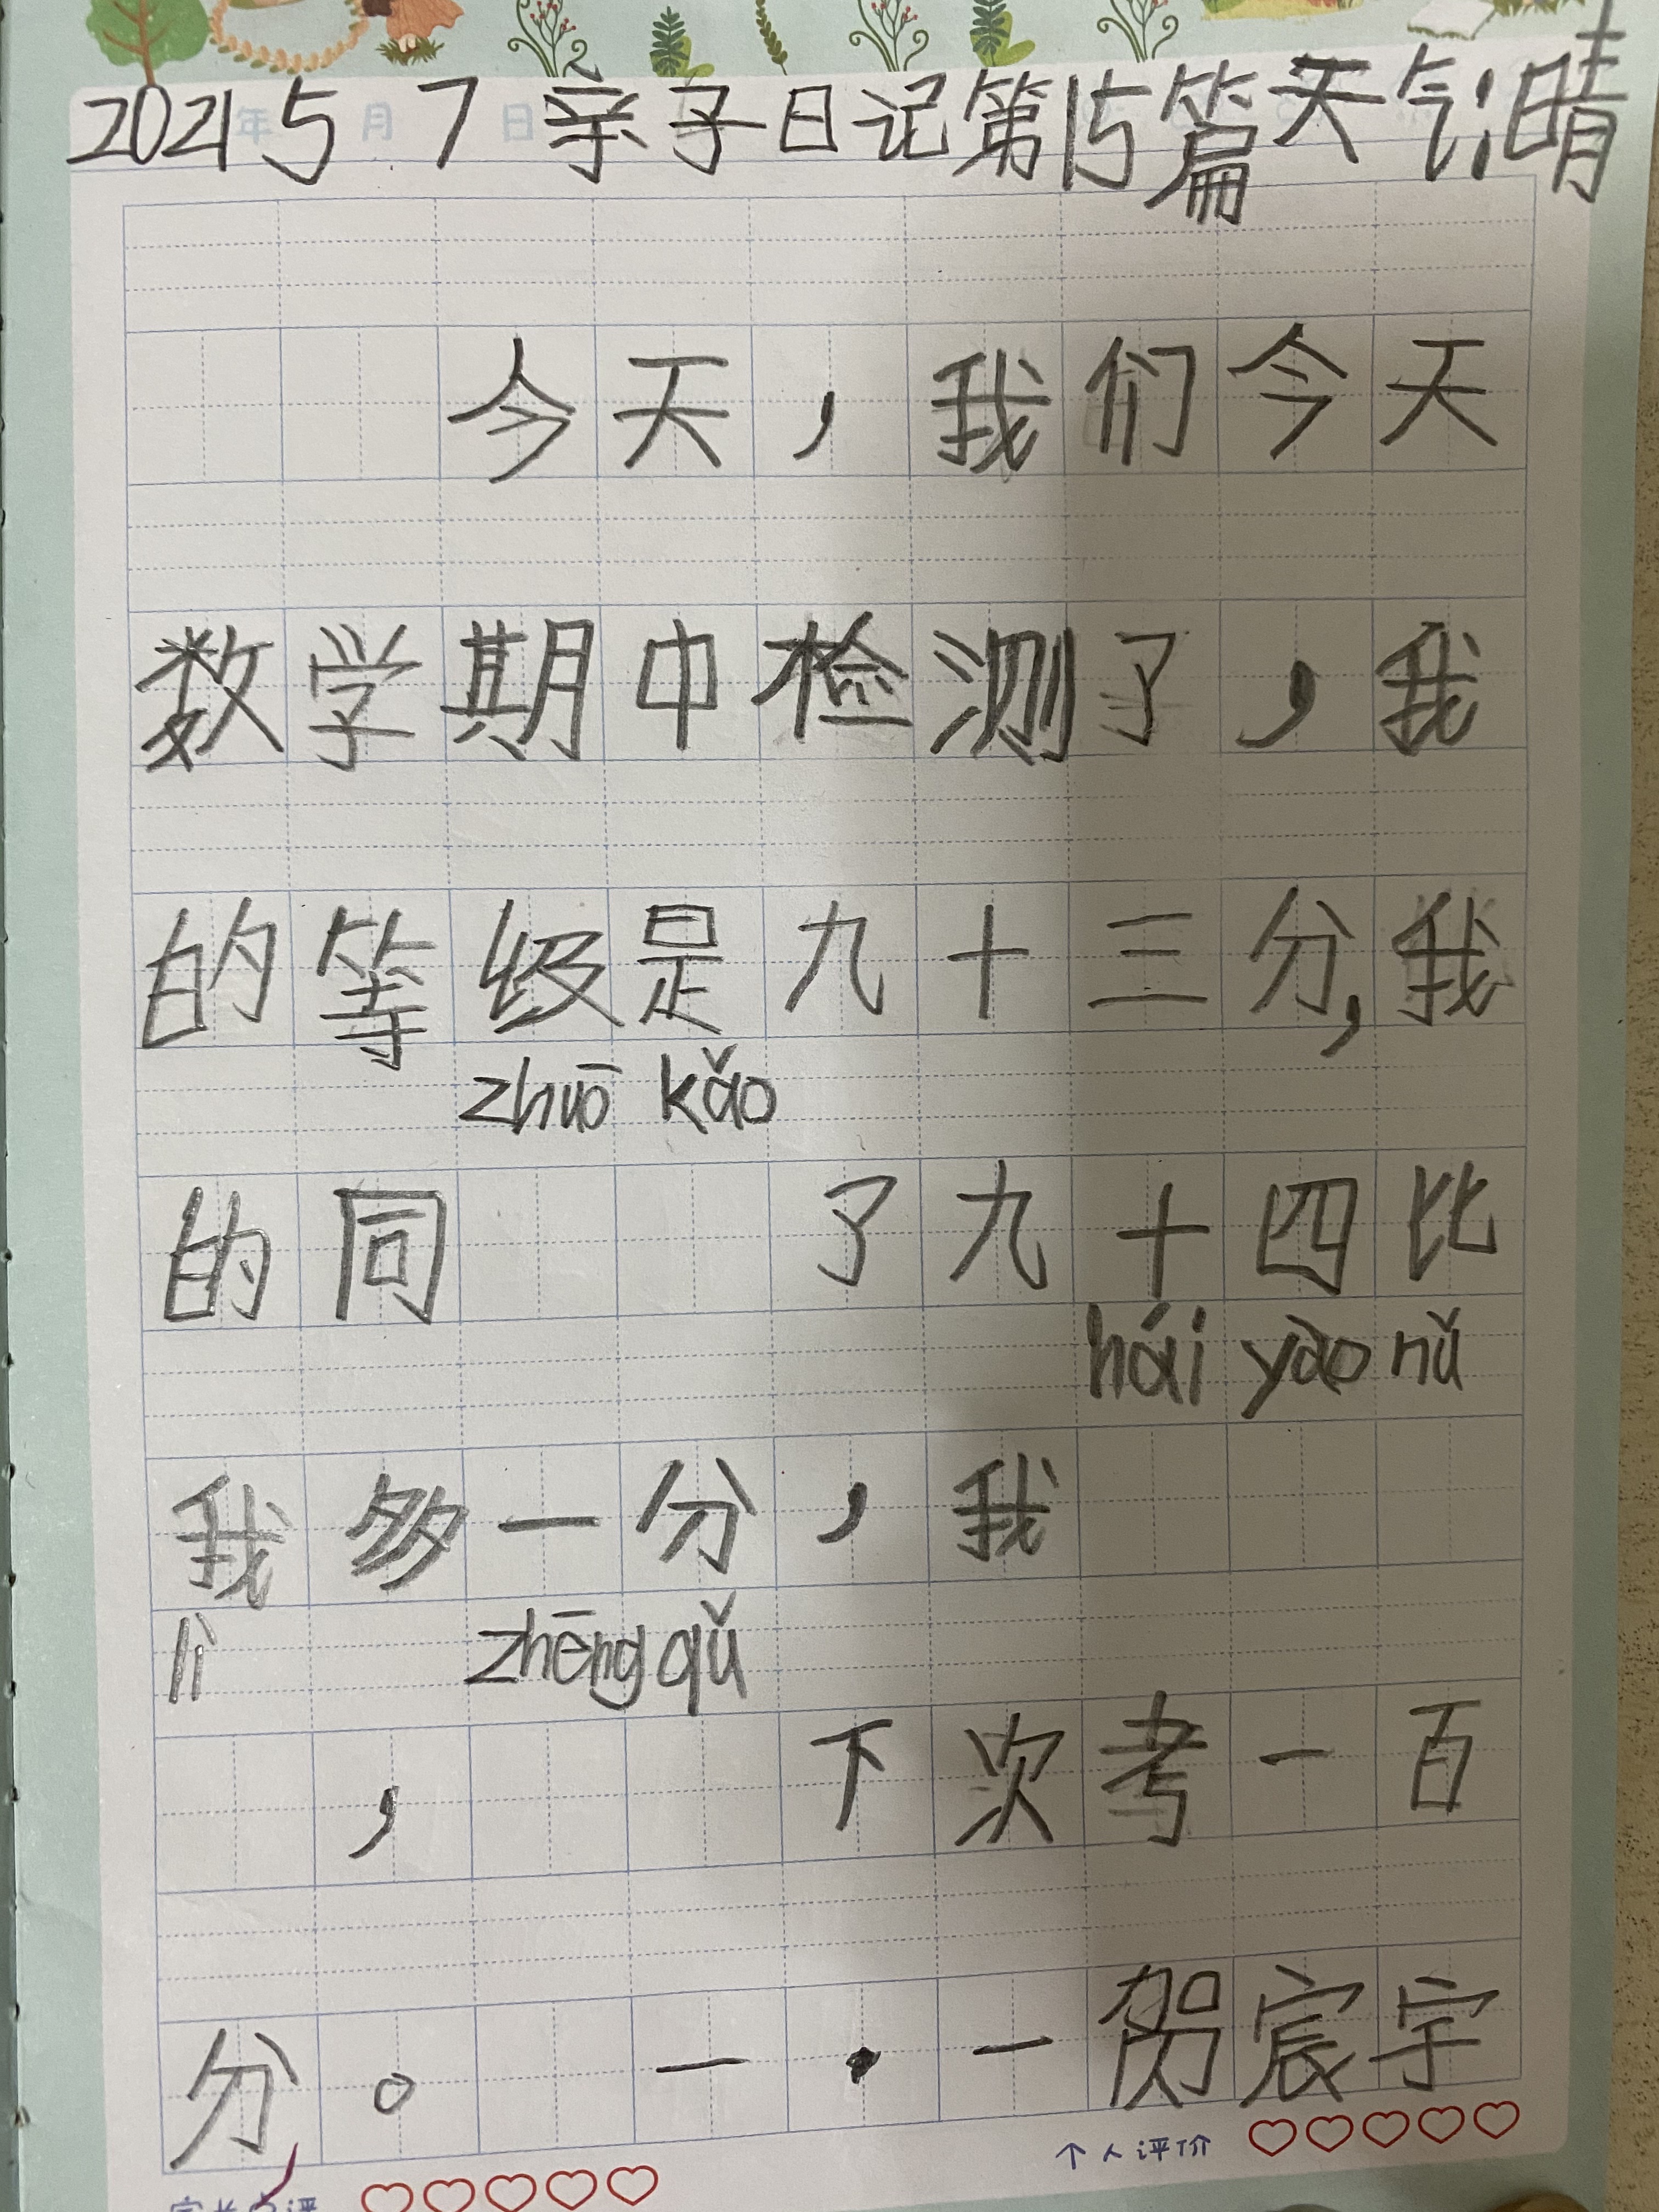 2021年5月7日亲子日记第15篇天气:晴
今天，我们今天
数学期中检测了，我
的等级是九十三分，我
zhuō kǎo
的同了九十四比
hái yào nǔ
我多一分，我
lì zhēng qǔ
，下次考一百
分。一·一贺宸宇
个人评价
家长点评